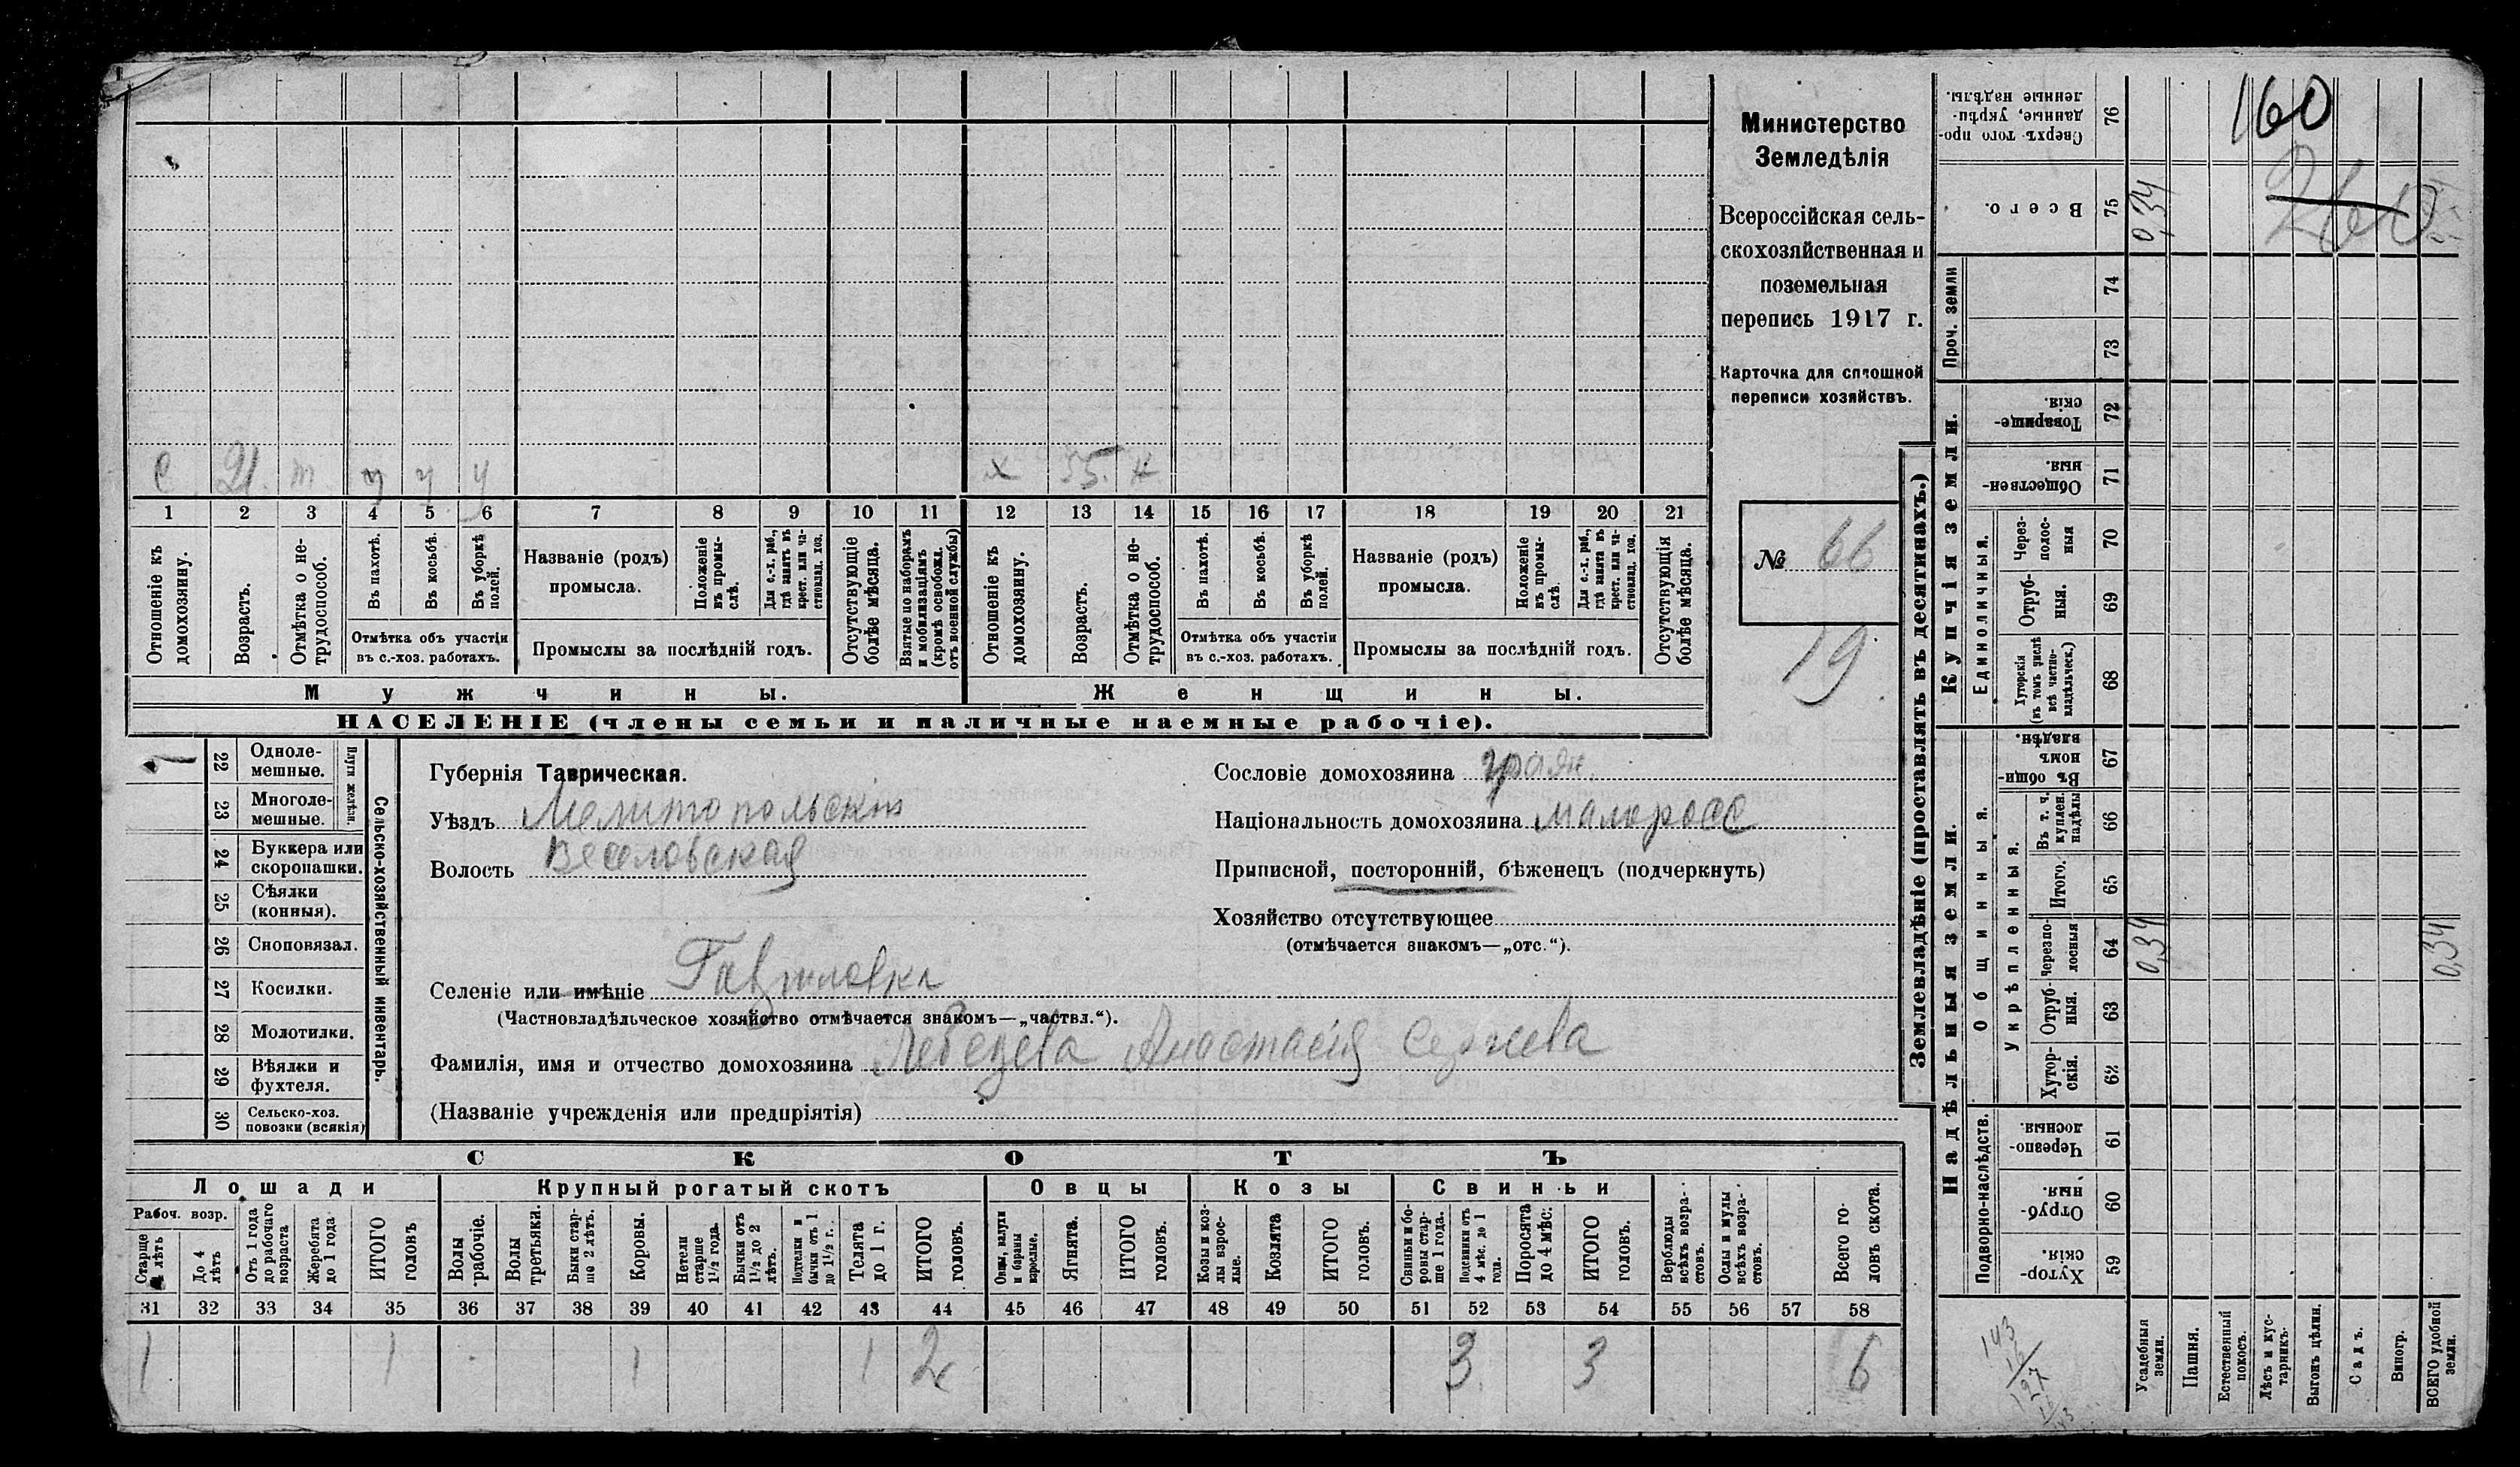 с 21. т у у у х 55. н
1 2 3 4 5 6 7 8 9 10 11 12 13 14 15 16 17 18 19 20 21
Отношеніе къ домохозяину.
Возрастъ.
Отмѣтка о не-трудоспособ.
Въ пахотѣ.
Въ косьбѣ.
Въ уборкѣ полей.
Отмѣтка объ участіи
въ с.-хоз. работахъ.
Названіе (родъ)
промысла.
Положеніе въ промы-слѣ.
Для с.-х. раб., гдѣ занятъ въ крест. или ча-стновлад. хоз.
Промыслы за послѣдній годъ.
Отсутствующіе болѣе мѣсяца.
Взятые по наборамъ и мобилизаціямъ (кромѣ освобожд. отъ военной службы)
Отношеніе къ домохозяину.
Возрастъ.
Отмѣтка о не-трудоспособ.
Въ пахотѣ.
Въ косьбѣ.
Въ уборкѣ полей.
Отмѣтка объ участіи
въ с.-хоз. работахъ.
Названіе (родъ)
промысла.
Положеніе въ промы-слѣ.
Для с.-х. раб., гдѣ занята въ крест. или ча-стновлад. хоз.
Промыслы за послѣдній годъ.
Отсутствующія болѣе мѣсяца.
Мужчины. Женщины.
НАСЕЛЕНІЕ (члены семьи и наличные наемные рабочіе).
Министерство
Земледѣлія
Всероссійская сель-
скохозяйственная и
поземельная
перепись 1917 г.
Карточка для сплошной
переписи хозяйствъ.
№ 66
19
1 22 Одноле-мешные.
23 Многоле-мешные.
Плуги желѣзн.
24 Буккера или скоропашки.
25 Сѣялки (конныя).
26 Сноповязал.
27 Косилки.
28 Молотилки.
29 Вѣялки и фухтеля.
30 Сельско-хоз. повозки (всякія)
Сельско-хозяйственный инвентарь.
Губернія Таврическая.
Уѣздъ Мелитопольскій
Волость Веселовская
Селеніе или имѣніе Гавриловка
(Частновладѣльческое хозяйство отмѣчается знакомъ—„частвл.“).
Фамилія, имя и отчество домохозяина Лебедева Анастасія Сергеева
(Названіе учрежденія или предпріятія)
Сословіе домохозяина граж.
Національность домохозяина малоросс
Приписной, посторонній, бѣженецъ (подчеркнуть)
Хозяйство отсутствующее
(отмѣчается знакомъ—„отс.“).
СКОТЪ
Лошади Крупный рогатый скотъ Овцы Козы Свиньи
Рабоч. возр.
Старше 4 лѣтъ
До 4 лѣтъ
Отъ 1 года до рабочаго возраста
Жеребята до 1 года
ИТОГО головъ
Волы рабочіе.
Волы третьяки.
Быки стар-ше 2 лѣтъ.
Коровы.
Нетели старше 1½ года.
Бычки отъ 1½ до 2 лѣтъ.
Нетелки и бычки отъ 1 до 1½ г.
Телята до 1 г.
ИТОГО головъ.
Овцы, валухи и бараны взрослые.
Ягнята.
ИТОГО головъ.
Козы и коз-лы взрос-лые.
Козлята
ИТОГО головъ.
Свиньи и бо-ровы стар-ше 1 года.
Подсвинки отъ 4 мѣс. до 1 года.
Поросята до 4 мѣс.
ИТОГО головъ.
Верблюды всѣхъ возра-стовъ.
Ослы и мулы всѣхъ возра-стовъ.
Всего го-ловъ скота.
31 32 33 34 35 36 37 38 39 40 41 42 43 44 45 46 47 48 49 50 51 52 53 54 55 56 57 58
1 1 1 1 2 3 3 6
Землевладѣніе (проставлять въ десятинахъ.)
Надѣльныя земли. Купчія земли. Проч. земли
Подворно-наслѣдств.
Общинныя.
Укрѣпленныя.
Единоличныя.
Сверхъ того про-данные, укрѣп-ленные надѣлы. 76
Всего. 75 0,34
74
73
Товарище-скія. 72
Обществен-ныя. 71
Через-полос-ныя 70
Отруб-ныя. 69
Хуторскія (въ томъ числѣ всѣ частно-владѣльческ.) 68
Въ общи-номъ владѣн. 67
Въ т. ч. куплен. надѣлы 66
Итого. 65
Черезпо-лосныя 64 0,34 0,34
Отруб-ныя. 63
Хутор-скія. 62
Черезпо-лосныя. 61
Отруб-ныя. 60
Хутор-скія. 59
Усадебныя земли.
Пашня.
Естественный покосъ.
Лѣсъ и кус-тарникъ.
Выгонъ цѣлин.
Садъ.
Виногр.
ВСЕГО удобной земли.
160
260
143
16
127
16
143